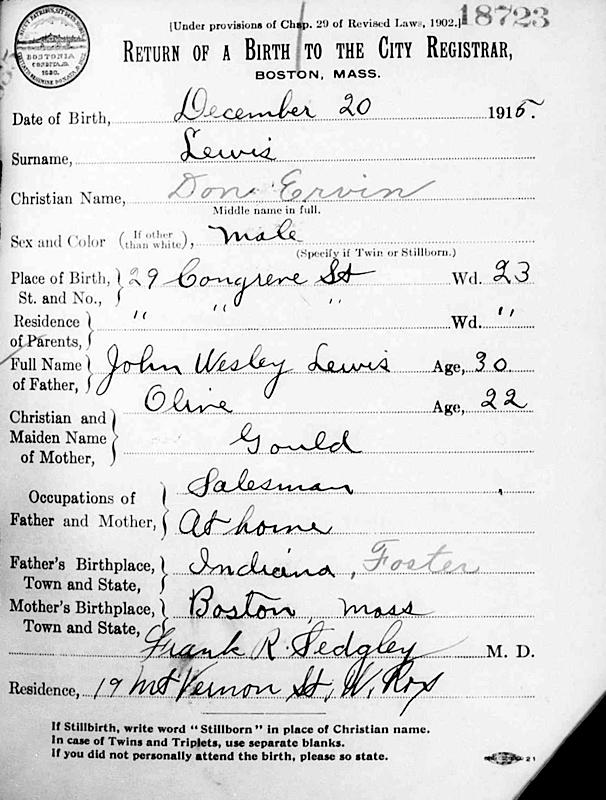 [Under provisions of Chap. 29 of Revised Laws, 1902.] 18723
RETURN OF A BIRTH TO THE CITY REGISTRAR,
BOSTON, MASS.
BOSTONIA
CONDITA A.D.
1630.
Date of Birth, December 20 1915.
Surname, Lewis
Christian Name, Don Ervin
Middle name in full.
Sex and Color (If other than white), Male
(Specify if Twin or Stillborn.)
Place of Birth, St. and No., 29 Congreve St Wd. 23
Residence of Parents, " " " Wd. "
Full Name of Father, John Wesley Lewis Age, 30
Olive Age, 22
Christian and Maiden Name of Mother, Gould
Occupations of Father and Mother, Salesman
At home
Father's Birthplace, Town and State, Indiana, Foster
Mother's Birthplace, Town and State, Boston, Mass
Frank R. Sedgley M. D.
Residence, 19 Mt Vernon St, W. Rox
If Stillbirth, write word "Stillborn" in place of Christian name.
In case of Twins and Triplets, use separate blanks.
If you did not personally attend the birth, please so state.
21